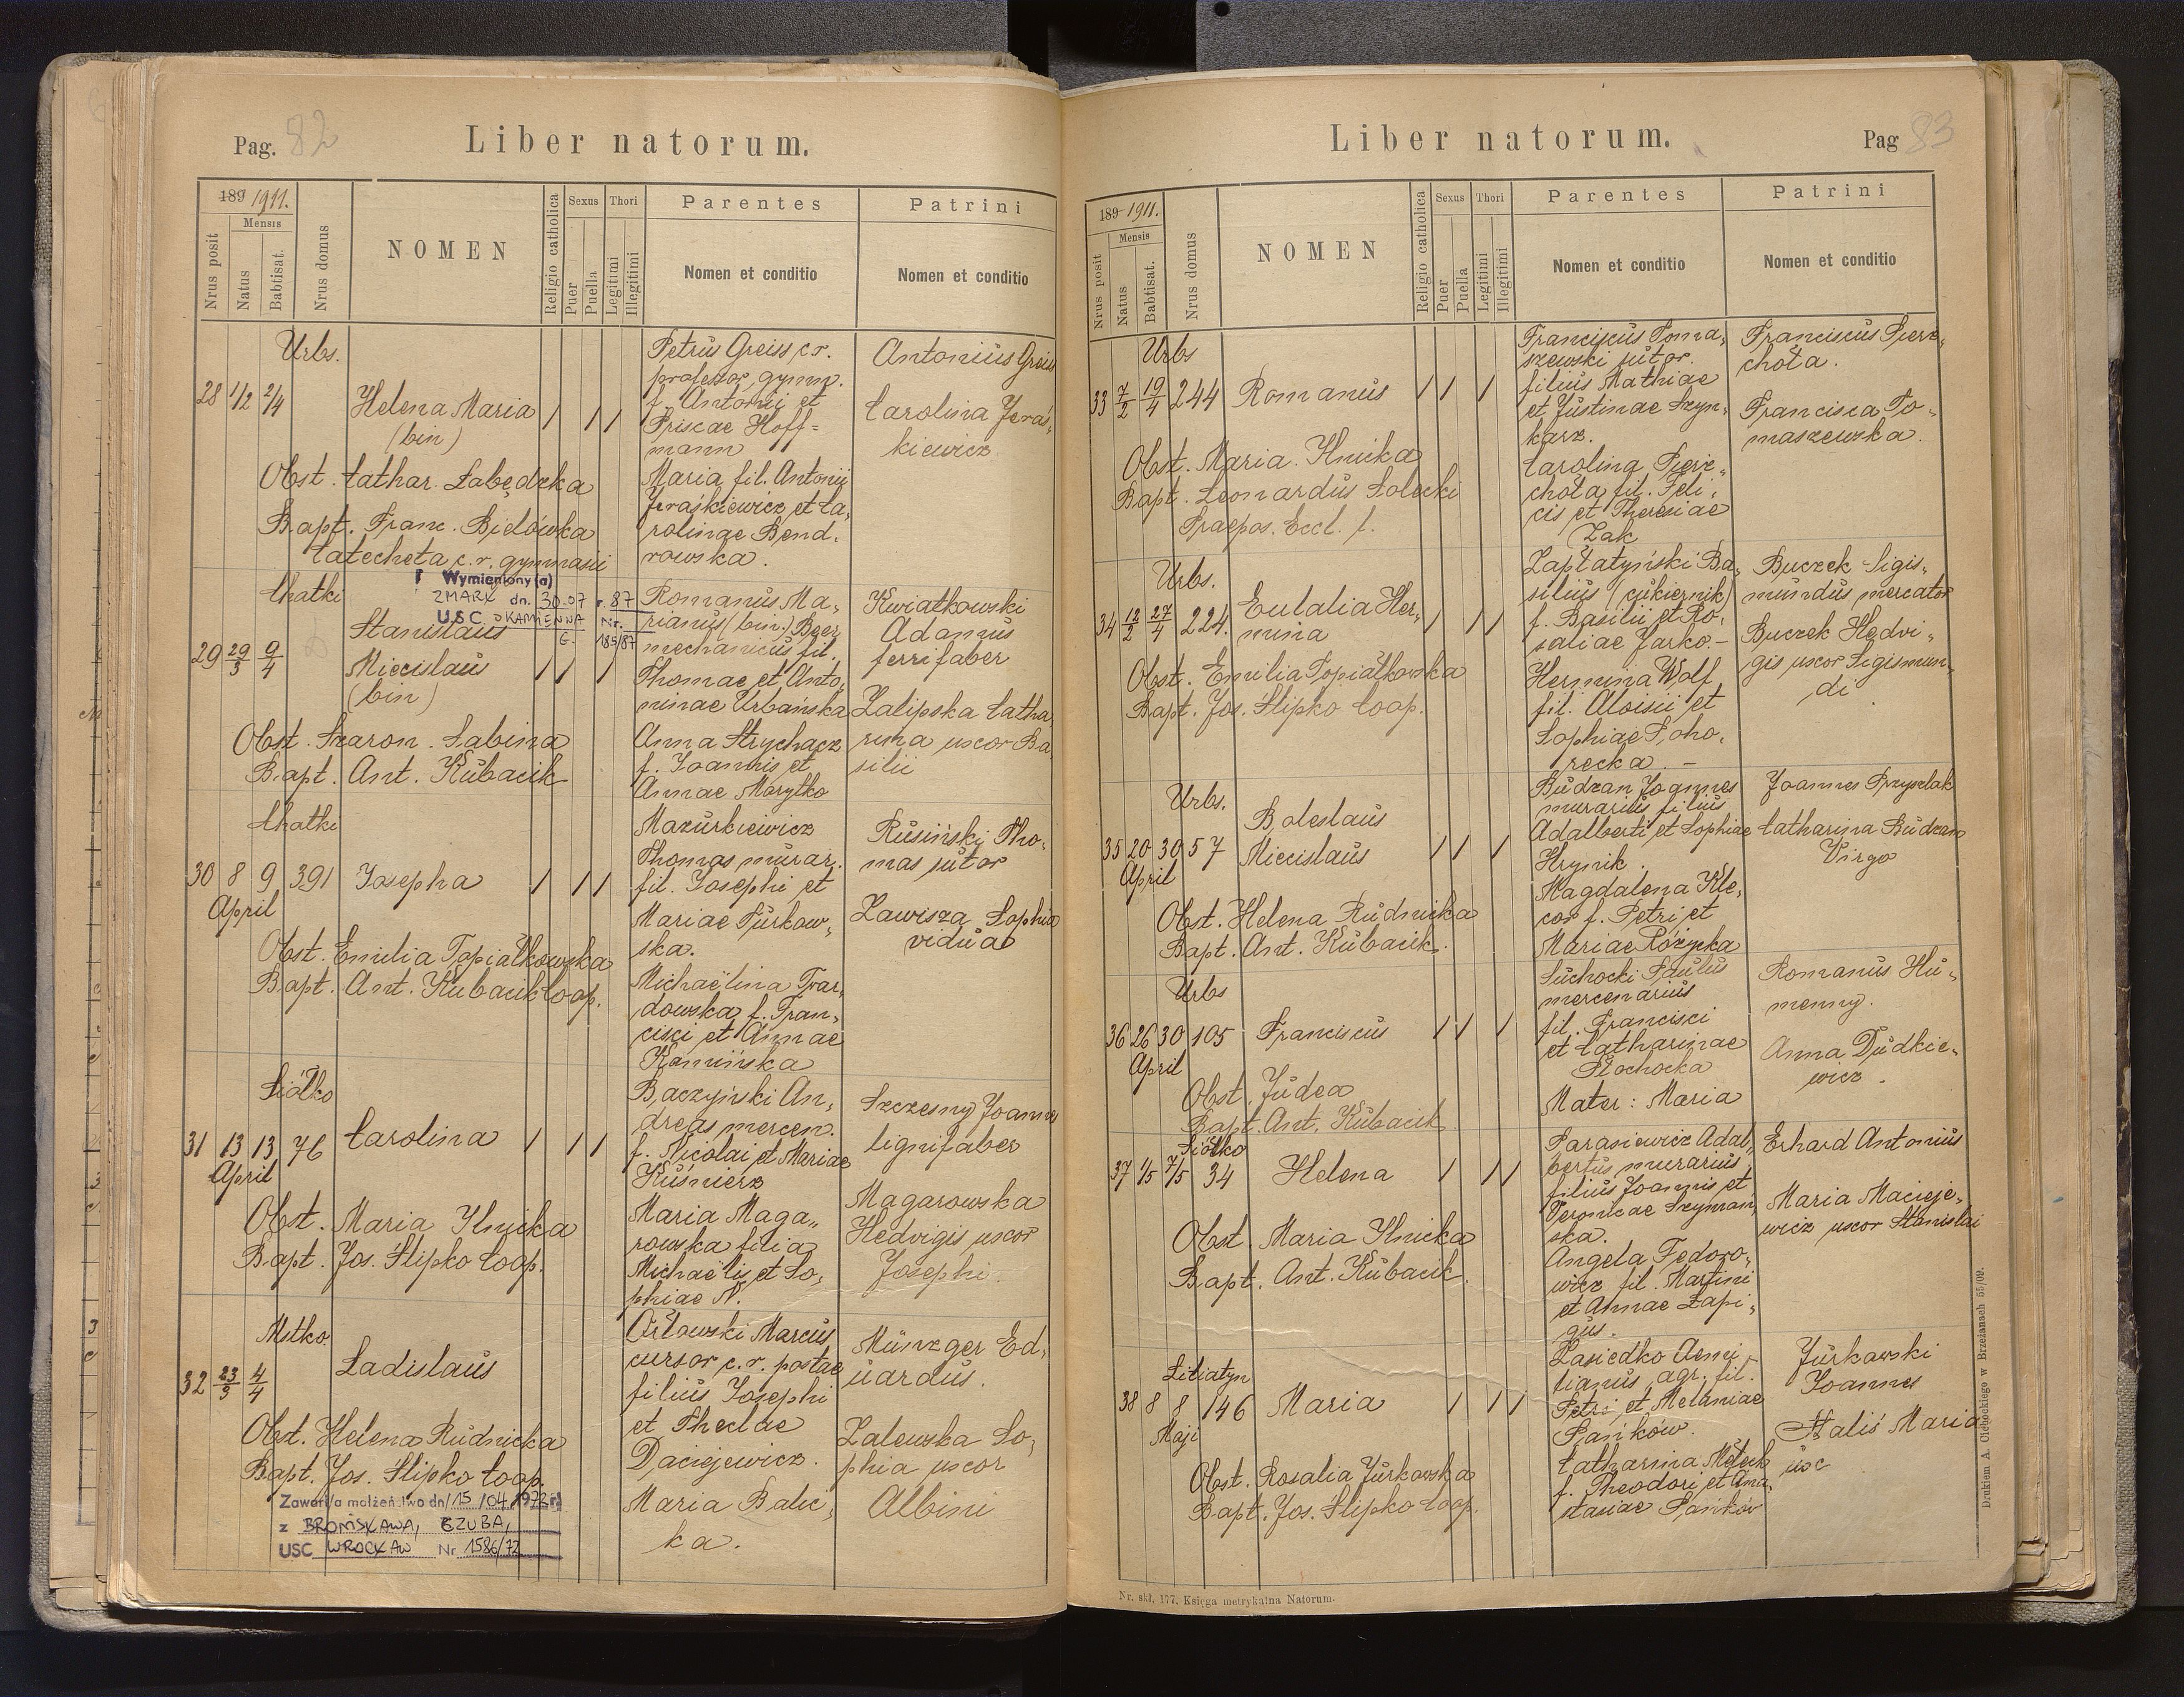 Pag. 82
Liber natorum.
189 1911.
Mensis
Nrus posit
Natus
Babtisat.
Nrus domus
NOMEN
Religio catholica
Sexus
Puer
Puella
Thori
Legitimi
Illegitimi
Parentes
Nomen et conditio
Patrini
Nomen et conditio
Urbs.
28 1/2 2/4
Helena Maria
(bin)
Obst. Cathar. Łabędzka
Bapt. Franc. Bielówka
Catecheta c.r. gymnasii
Petrus Greiss c.r.
professor gymn.
f. Antonii et
Priscae Hoff=
mann
Maria fil. Antonii
Jeraśkiewicz et Ca,
rolinae Bend,
rowska.
Antonius Greiss
Carolina Jeraś,
kiewicz
Wymieniony(a)
ZMARŁ dn. 30.07 r. 87
USC Nr. 185/87
Chatki
29 29/3 9/4
Stanislaus
Miecislaus
(bin)
Obst. Szaron. Sabina
Bapt. Ant. Kubacik
Romanus Ma,
rianus (bin.) Beer
mechanicus fil.
Thomae et Anto,
ninae Urbańska
Anna Strychacz
f. Joannis et
Annae Marytko
Kwiatkowski
Adamus
ferrifaber
Zalipska Catha
rina uxor Ba
silii
Chatki
30 8 9 391 Josepha
April
Obst. Emilia Topiałkowska
Bapt. Ant. Kubacik Coop.
Mazurkiewicz
Thomas murar.
fil. Josephi et
Mariae Turkow,
ska.
Michaëlina Twar,
dowska f. Fran,
cisci et Annae
Kamińska
Rusiński Tho,
mas sutor
Zawisza Sophia
vidua
Siółko
31 13 13 76 Carolina
April
Obst. Maria Ilnicka
Bapt. Jos. Slipko Coop.
Baczyński An,
dreas mercen.
f. Nicolai et Mariae
Kuśnierz
Maria Maga,,
rowska filia
Michaëli et So,
phiae N.
Szczesny Joannes
lignifaber
Magarowska
Hedvigis uxor
Josephi.
Mstko.
32 23/3 4/4
Ladislaus
Obst. Helena Rudnicka
Bapt. Jos. Slipko Coop.
Orłowski Marcus
cursor c.r. postae
filius Josephi
et Theclae
Daciejewicz.
Maria Balic,
ka.
Münzger Ed,
uardus.
Zalewska So,
phia uxor
Albini
Zawarł/a małżeństwo dn/15/04/1972 r.
z BRONISŁAWA, CZUBA,
USC WROCŁAW Nr 1586/72
Liber natorum.
Pag 83
189 1911.
Mensis
Nrus posit
Natus
Babtisat.
Nrus domus
NOMEN
Religio catholica
Sexus
Puer
Puella
Thori
Legitimi
Illegitimi
Parentes
Nomen et conditio
Patrini
Nomen et conditio
Urbs
33 7/2 19/4 244 Romanus
Obst. Maria Ilnicka
Bapt. Leonardus Solecki
Praepos. Eccl. f.
Franciscus Toma,
szewski sutor.
filius Mathiae
et Justinae Szyn,
karz.
Carolina Pierz,
chota fil. Feli,
cis et Theresiae
Żak
Franciscus Pierz,
chota.
Francisca To,
maszewska.
Urbs.
34 12/2 27/4 224.
Eulalia Her,
mina
Obst. Emilia Topiałkowska
Bapt. Jos. Slipko Coop.
Zapłatyński Ba,
silius (cukiernik)
f. Basilii et Ro,
saliae Jarko.-
Hermina Wolf
fil. Aloisii et
Sophiae Poho,
recka.-
Buczek Sigis,
mundus mercator
Buczek Hedvi,
gis uxor Sigismun,
di
Urbs.
35 20 30 57
April
Boleslaus
Miecislaus
Obst. Helena Rudnicka
Bapt. Ant. Kubacik.
Budzan Joannes
murarius filius
Adalberti et Sophiae
Hrynik.
Magdalena Kle,
cor f. Petri et
Mariae Różycka
Joannes Przyszlak
Catharina Budzan
Virgo
Urbs
36 26 30 105 Franciscus
April
Obst. Judea
Bapt. Ant. Kubacik.
Suchocki Paulus
mercenarius
fil. Francisci
et Catharinae
Płochocka
Mater: Maria
Romanus Hu,
menny.
Anna Dudkie,
wicz.
Siółko
37 1/5 7/5 34 Helena
Obst. Maria Ilnicka
Bapt. Ant. Kubacik.
Parasiewicz Adal,
bertus murarius
filius Joannis et
Veronicae Szymań,
ska.
Angela Fedoro,
wicz fil. Martini
et Annae Łapi,
gus.
Erhard Antonius
Maria Macieje,
wicz uxor Stanislai
Liliatyn
38 8 8 146 Maria
Maji
Obst. Rosalia Jurkowska
Bapt. Jos. Slipko Coop.
Zasiedko Aemi,
lianus, agr. fil.
Petri et Melaniae
Pańków.
Catharina
f. Theodori et Ana,
stasiae Pańków
Jurkowski
Joannes
Stališ Maria
ux
Nr. skł. 177. Księga metrykalna Natorum.
Drukiem A. Cichockiego w Brzeżanach 55/09.